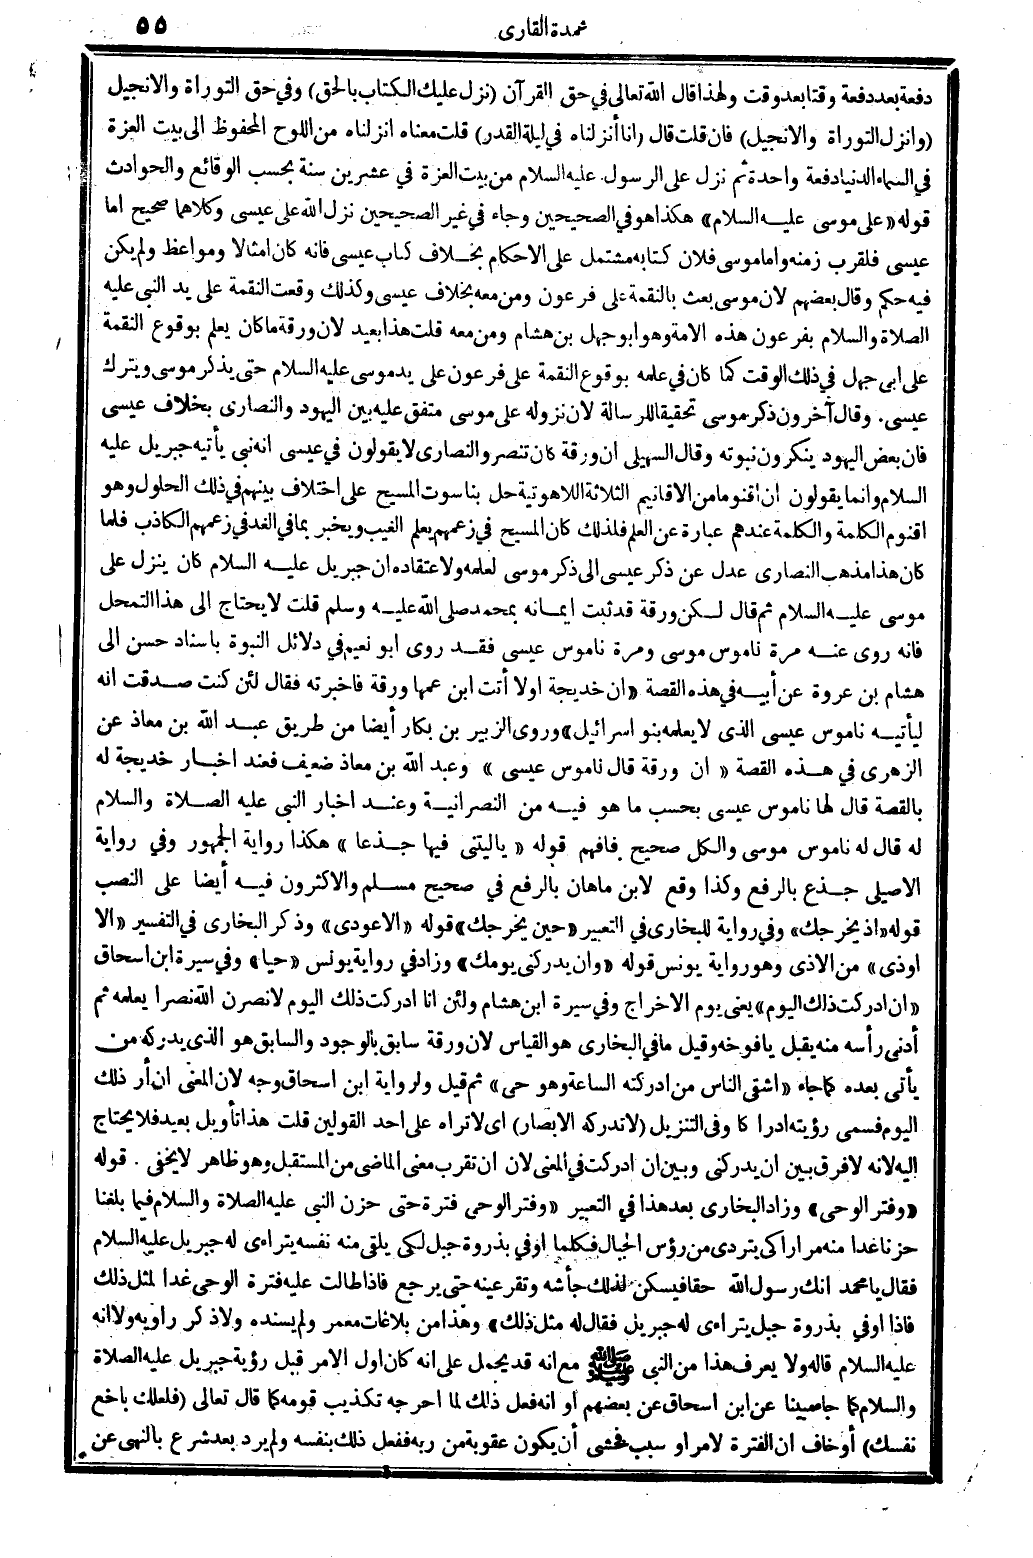 عمدة القارى ٥٥
دفعة بعد دفعة وقتا بعد وقت ولهذا قال الله تعالى في حق القرآن (نزل عليك الكتاب بالحق) وفي حق التوراة والانجيل
(وانزل التوراة والانجيل) فان قلت قال (انا أنزلناه في ليلة القدر) قلت معناه انزلناه من اللوح المحفوظ الى بيت العزة
في السماء الدنيا دفعة واحدة ثم نزل على الرسول عليه السلام من بيت العزة في عشرين سنة بحسب الوقائع والحوادث
قوله «على موسى عليه السلام» هكذا هو في الصحيحين وجاء في غير الصحيحين نزل الله على عيسى وكلاهما صحيح اما
عيسى فلقرب زمنه واما موسى فلان كتابه مشتمل على الاحكام بخلاف كتاب عيسى فانه كان امثالا ومواعظ ولم يكن
فيه حكم وقال بعضهم لان موسى بعث بالنقمة على فرعون ومن معه بخلاف عيسى وكذلك وقعت النقمة على يد النبي عليه
الصلاة والسلام بفرعون هذه الامة وهو ابو جهل بن هشام ومن معه قلت هذا بعيد لان ورقة ما كان يعلم بوقوع النقمة
على ابى جهل في ذلك الوقت كما كان في علمه بوقوع النقمة على فرعون على يد موسى عليه السلام حتى يذكر موسى ويترك
عيسى. وقال آخرون ذكر موسى تحقيقا للرسالة لان نزوله على موسى متفق عليه بين اليهود والنصارى بخلاف عيسى
فان بعض اليهود ينكرون نبوته وقال السهيلى ان ورقة كان تنصر والنصارى لا يقولون في عيسى انه نبي يأتيه جبريل عليه
السلام وانما يقولون ان اقنوما من الاقانيم الثلاثة اللاهوتية حل بناسوت المسيح على اختلاف بينهم في ذلك الحلول وهو
اقنوم الكلمة والكلمة عندهم عبارة عن العلم فلذلك كان المسيح في زعمهم يعلم الغيب ويخبر بما في الغد في زعمهم الكاذب فلما
كان هذا مذهب النصارى عدل عن ذكر عيسى الى ذكر موسى لعلمه ولاعتقاده ان جبريل عليه السلام كان ينزل على
موسى عليه السلام ثم قال لكن ورقة قد ثبت ايمانه بمحمد صلى الله عليه وسلم قلت لا يحتاج الى هذا التمحل
فانه روى عنه مرة ناموس موسى ومرة ناموس عيسى فقد روى ابو نعيم في دلائل النبوة باسناد حسن الى
هشام بن عروة عن أبيه في هذه القصة «ان خديجة اولا أتت ابن عمها ورقة فاخبرته فقال لئن كنت صدقت انه
ليأتيه ناموس عيسى الذى لا يعلمه بنو اسرائيل» وروى الزبير بن بكار أيضا من طريق عبد الله بن معاذ عن
الزهرى في هذه القصة «ان ورقة قال ناموس عيسى» وعبد الله بن معاذ ضعيف فعند اخبار خديجة له
بالقصة قال لها ناموس عيسى بحسب ما هو فيه من النصرانية وعند اخبار النبي عليه الصلاة والسلام
له قال له ناموس موسى والكل صحيح فافهم قوله «ياليتنى فيها جذعا» هكذا رواية الجمهور وفي رواية
الاصيلى جذع بالرفع وكذا وقع لابن ماهان بالرفع في صحيح مسلم والاكثرون فيه أيضا على النصب
قوله «اذ يخرجك» وفي رواية للبخارى في التعبير «حين يخرجك» قوله «الا عودى» وذكر البخارى في التفسير «الا
اوذى» من الاذى وهو رواية يونس قوله «وان يدركنى يومك» وزاد في رواية يونس «حيا» وفي سيرة ابن اسحاق
«ان ادركت ذاك اليوم» يعنى يوم الاخراج وفي سيرة ابن هشام ولئن انا ادركت ذلك اليوم لانصرن الله نصرا يعلمه ثم
أدنى رأسه منه يقبل يافوخه وقيل ما في البخارى هو القياس لان ورقة سابق بالوجود والسابق هو الذى يدركه من
يأتى بعده كما جاء «اشقى الناس من ادركته الساعة وهو حى» ثم قيل ولرواية ابن اسحاق وجه لان المعنى ان أر ذلك
اليوم فسمى رؤيته ادراكا وفى التنزيل (لا تدركه الابصار) اى لا تراه على احد القولين قلت هذا تأويل بعيد فلا يحتاج
اليه لانه لا فرق بين ان يدركنى وبين ان ادركت في المعنى لان ان تقرب معنى الماضى من المستقبل وهو ظاهر لا يخفى . قوله
«وفتر الوحى» وزاد البخارى بعد هذا في التعبير «وفتر الوحى فترة حتى حزن النبي عليه الصلاة والسلام فيما بلغنا
حزنا غدا منه مرارا كى يتردى من رؤس الجبال فكلما اوفي بذروة جبل لكى يلقى منه نفسه يتراءى له جبريل عليه السلام
فقال يا محمد انك رسول الله حقا فيسكن لذلك جأشه وتقر عينه حتى يرجع فاذا طالت عليه فترة الوحى غدا لمثل ذلك
فاذا اوفي بذروة جبل يتراءى له جبريل فقال له مثل ذلك» وهذا من بلاغات معمر ولم يسنده ولا ذكر راويه ولا انه
عليه السلام قاله ولا يعرف هذا من النبي ﷺ مع انه قد يحمل على انه كان اول الامر قبل رؤية جبريل عليه الصلاة
والسلام كما جاء مبينا عن ابن اسحاق عن بعضهم أو انه فعل ذلك لما احرجه تكذيب قومه كما قال تعالى (فلعلك باخع
نفسك) أو خاف ان الفترة لامر او سبب فخشى أن يكون عقوبة من ربه ففعل ذلك بنفسه ولم يرد بعد شرع بالنهى عن